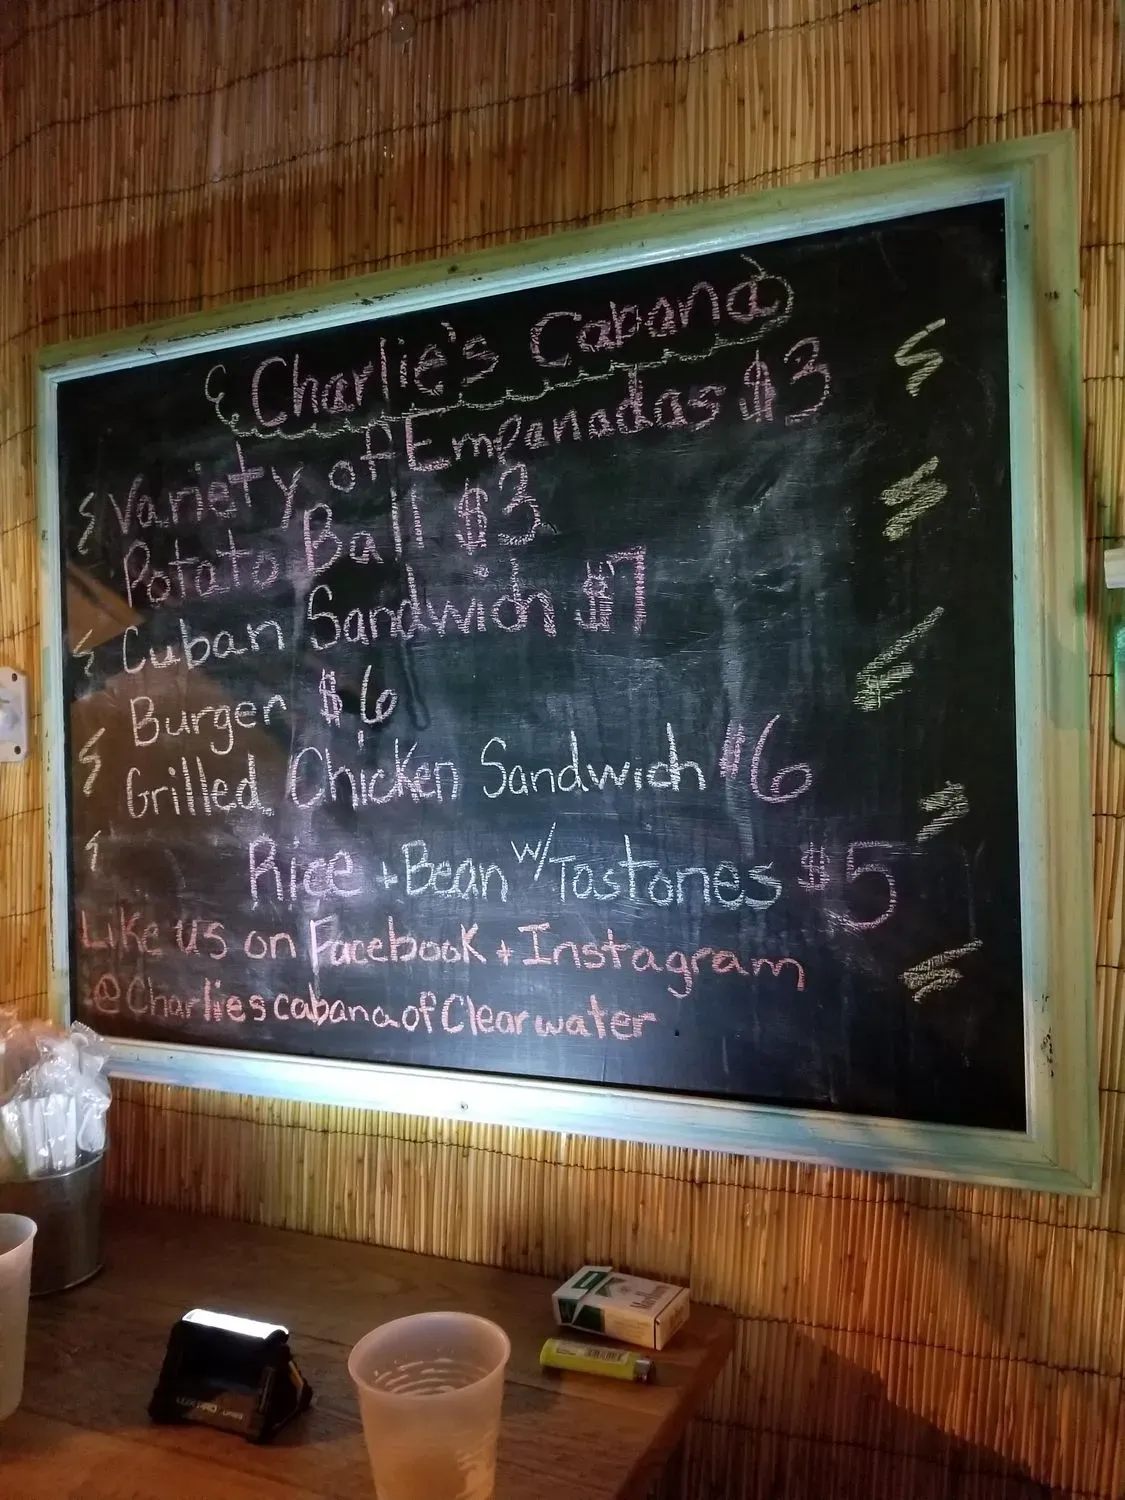 Charlie's Cabana
Variety of Empanadas $3
Potato Ball $3
Cuban Sandwich $7
Burger $6
Grilled Chicken Sandwich $6
Rice + Bean w/ Tostones $5
Like us on Facebook + Instagram
@CharliescabanaofClearwater
Marlboro